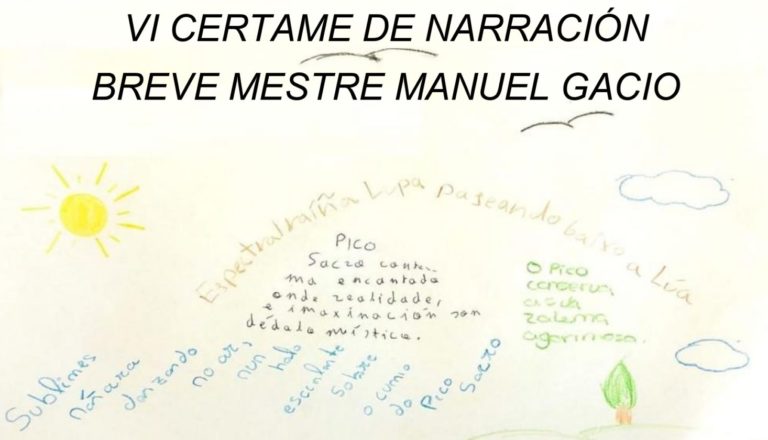 VI CERTAME DE NARRACIÓN
BREVE MESTRE MANUEL GACIO
Espectral raíña Lupa paseando baixo a Lúa
PICO
Sacro conte..
ma encantada
onde realidade,
e imaxinación son
dédalo místico.
O Pico
conserva
a súa
zalema
agarimosa.
Sublimes
danzando
no ar,
nun
halo
escintilante
sobre
o cumio
do
Pico
Sacro